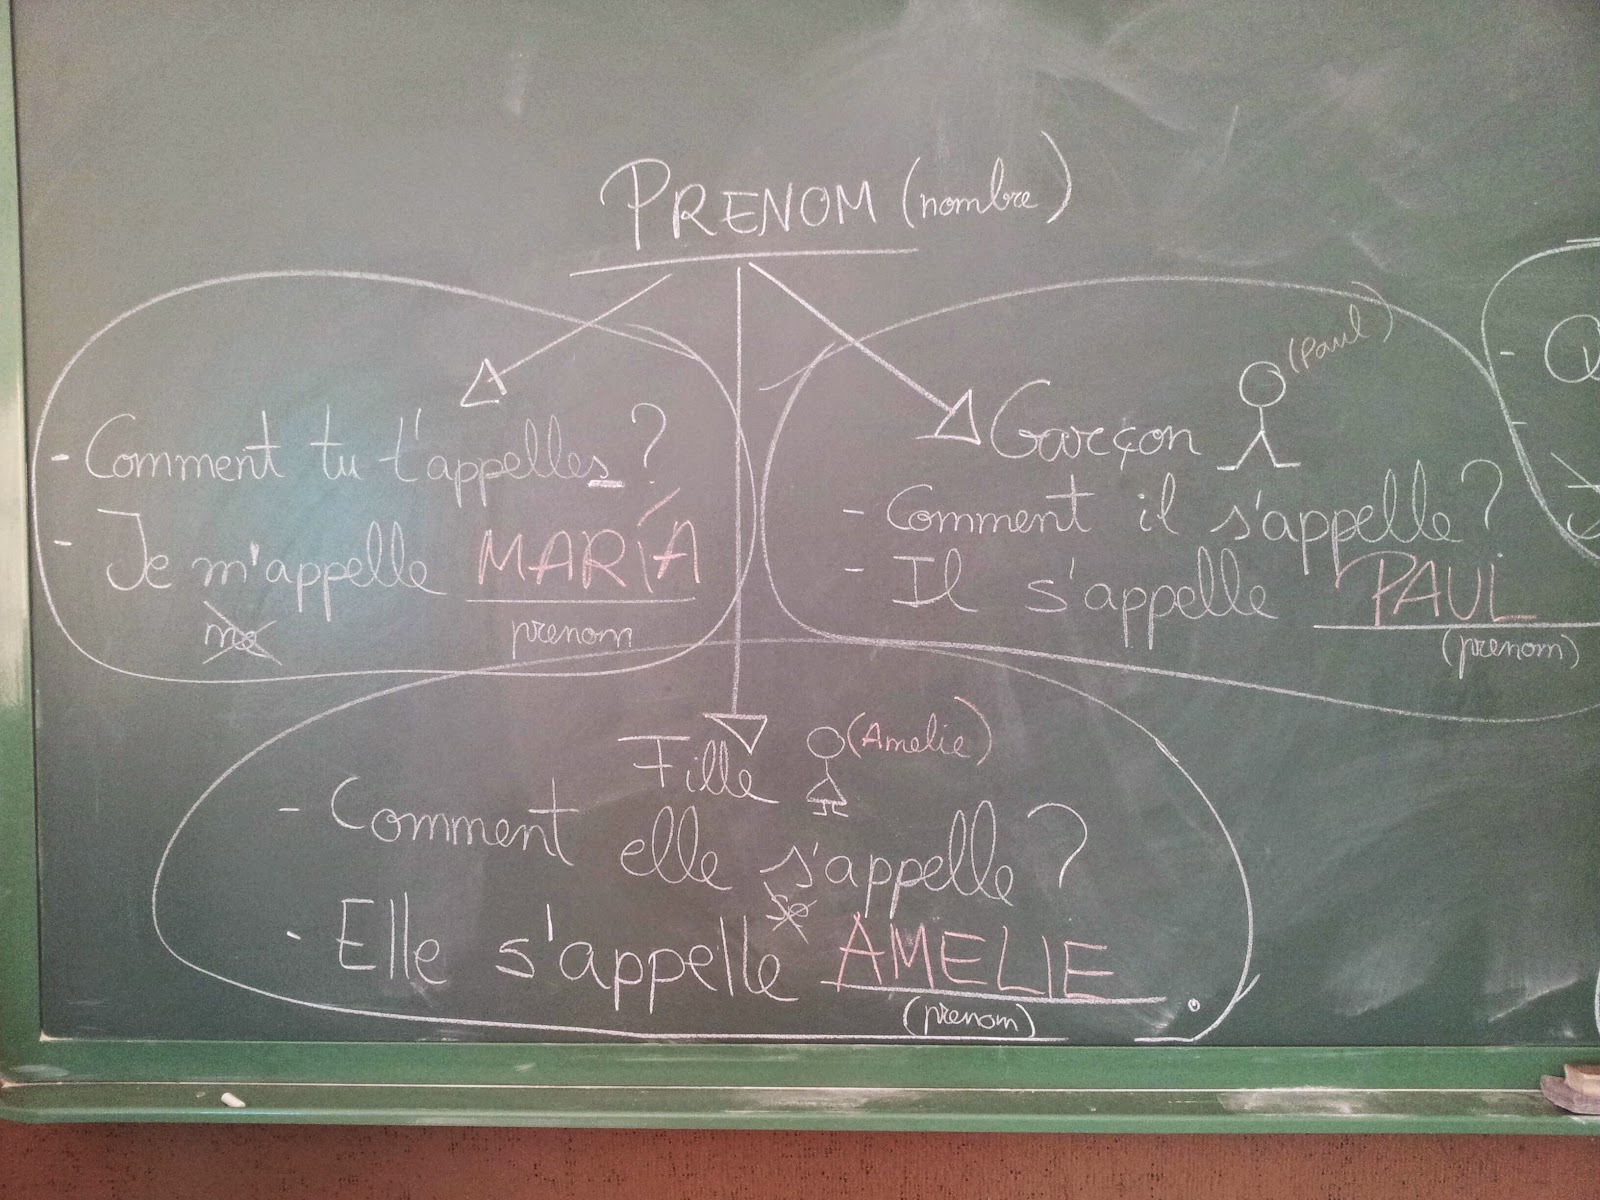 PRENOM (nombre)
- Comment tu t'appelles ?
- Je m'appelle MARÍA
me
prenom
Garçon (Paul)
- Comment il s'appelle ?
- Il s'appelle PAUL
(prenom)
Fille (Amelie)
- Comment elle s'appelle ?
se
- Elle s'appelle AMELIE.
(prenom)